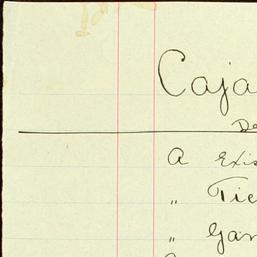 Caja
De
A Exis
" Tie
" Gan